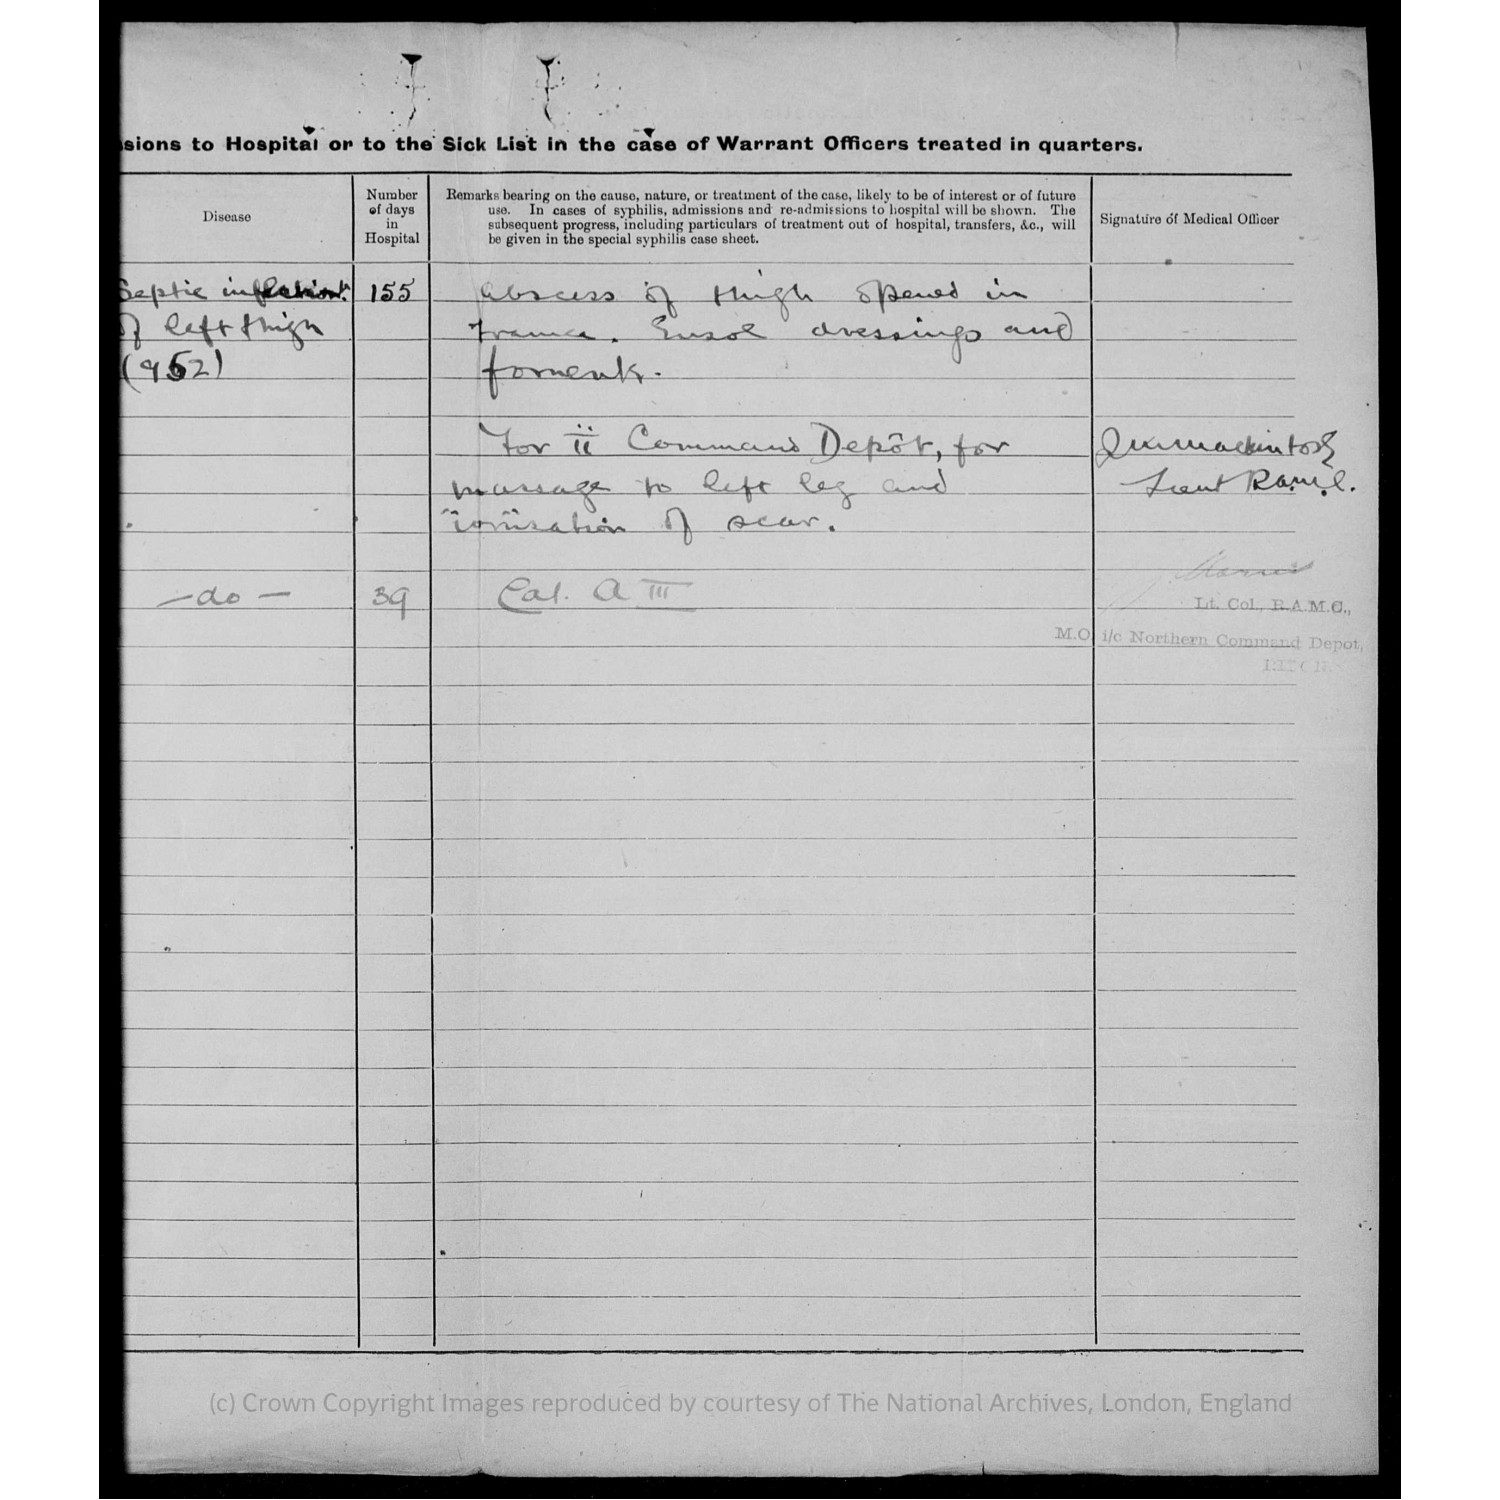 sions to Hospital or to the Sick List in the case of Warrant Officers treated in quarters.
Disease
Number
of days
in
Hospital
Remarks bearing on the cause, nature, or treatment of the case, likely to be of interest or of future
use. In cases of syphilis, admissions and re-admissions to hospital will be shown. The
subsequent progress, including particulars of treatment out of hospital, transfers, &c., will
be given in the special syphilis case sheet.
Signature of Medical Officer
Septic infection 155 Abscess of thigh opened in
of left thigh France. Eusol dressings and
(952) foments.
For II Command Depôt, for
massage to left leg and
ionisation of scar.
Mackintosh
Lieut R.A.M.C.
- do - 39 Cat. A III
Lt. Col., R.A.M.C.,
M.O. i/c Northern Command Depot,
(c) Crown Copyright Images reproduced by courtesy of The National Archives, London, England